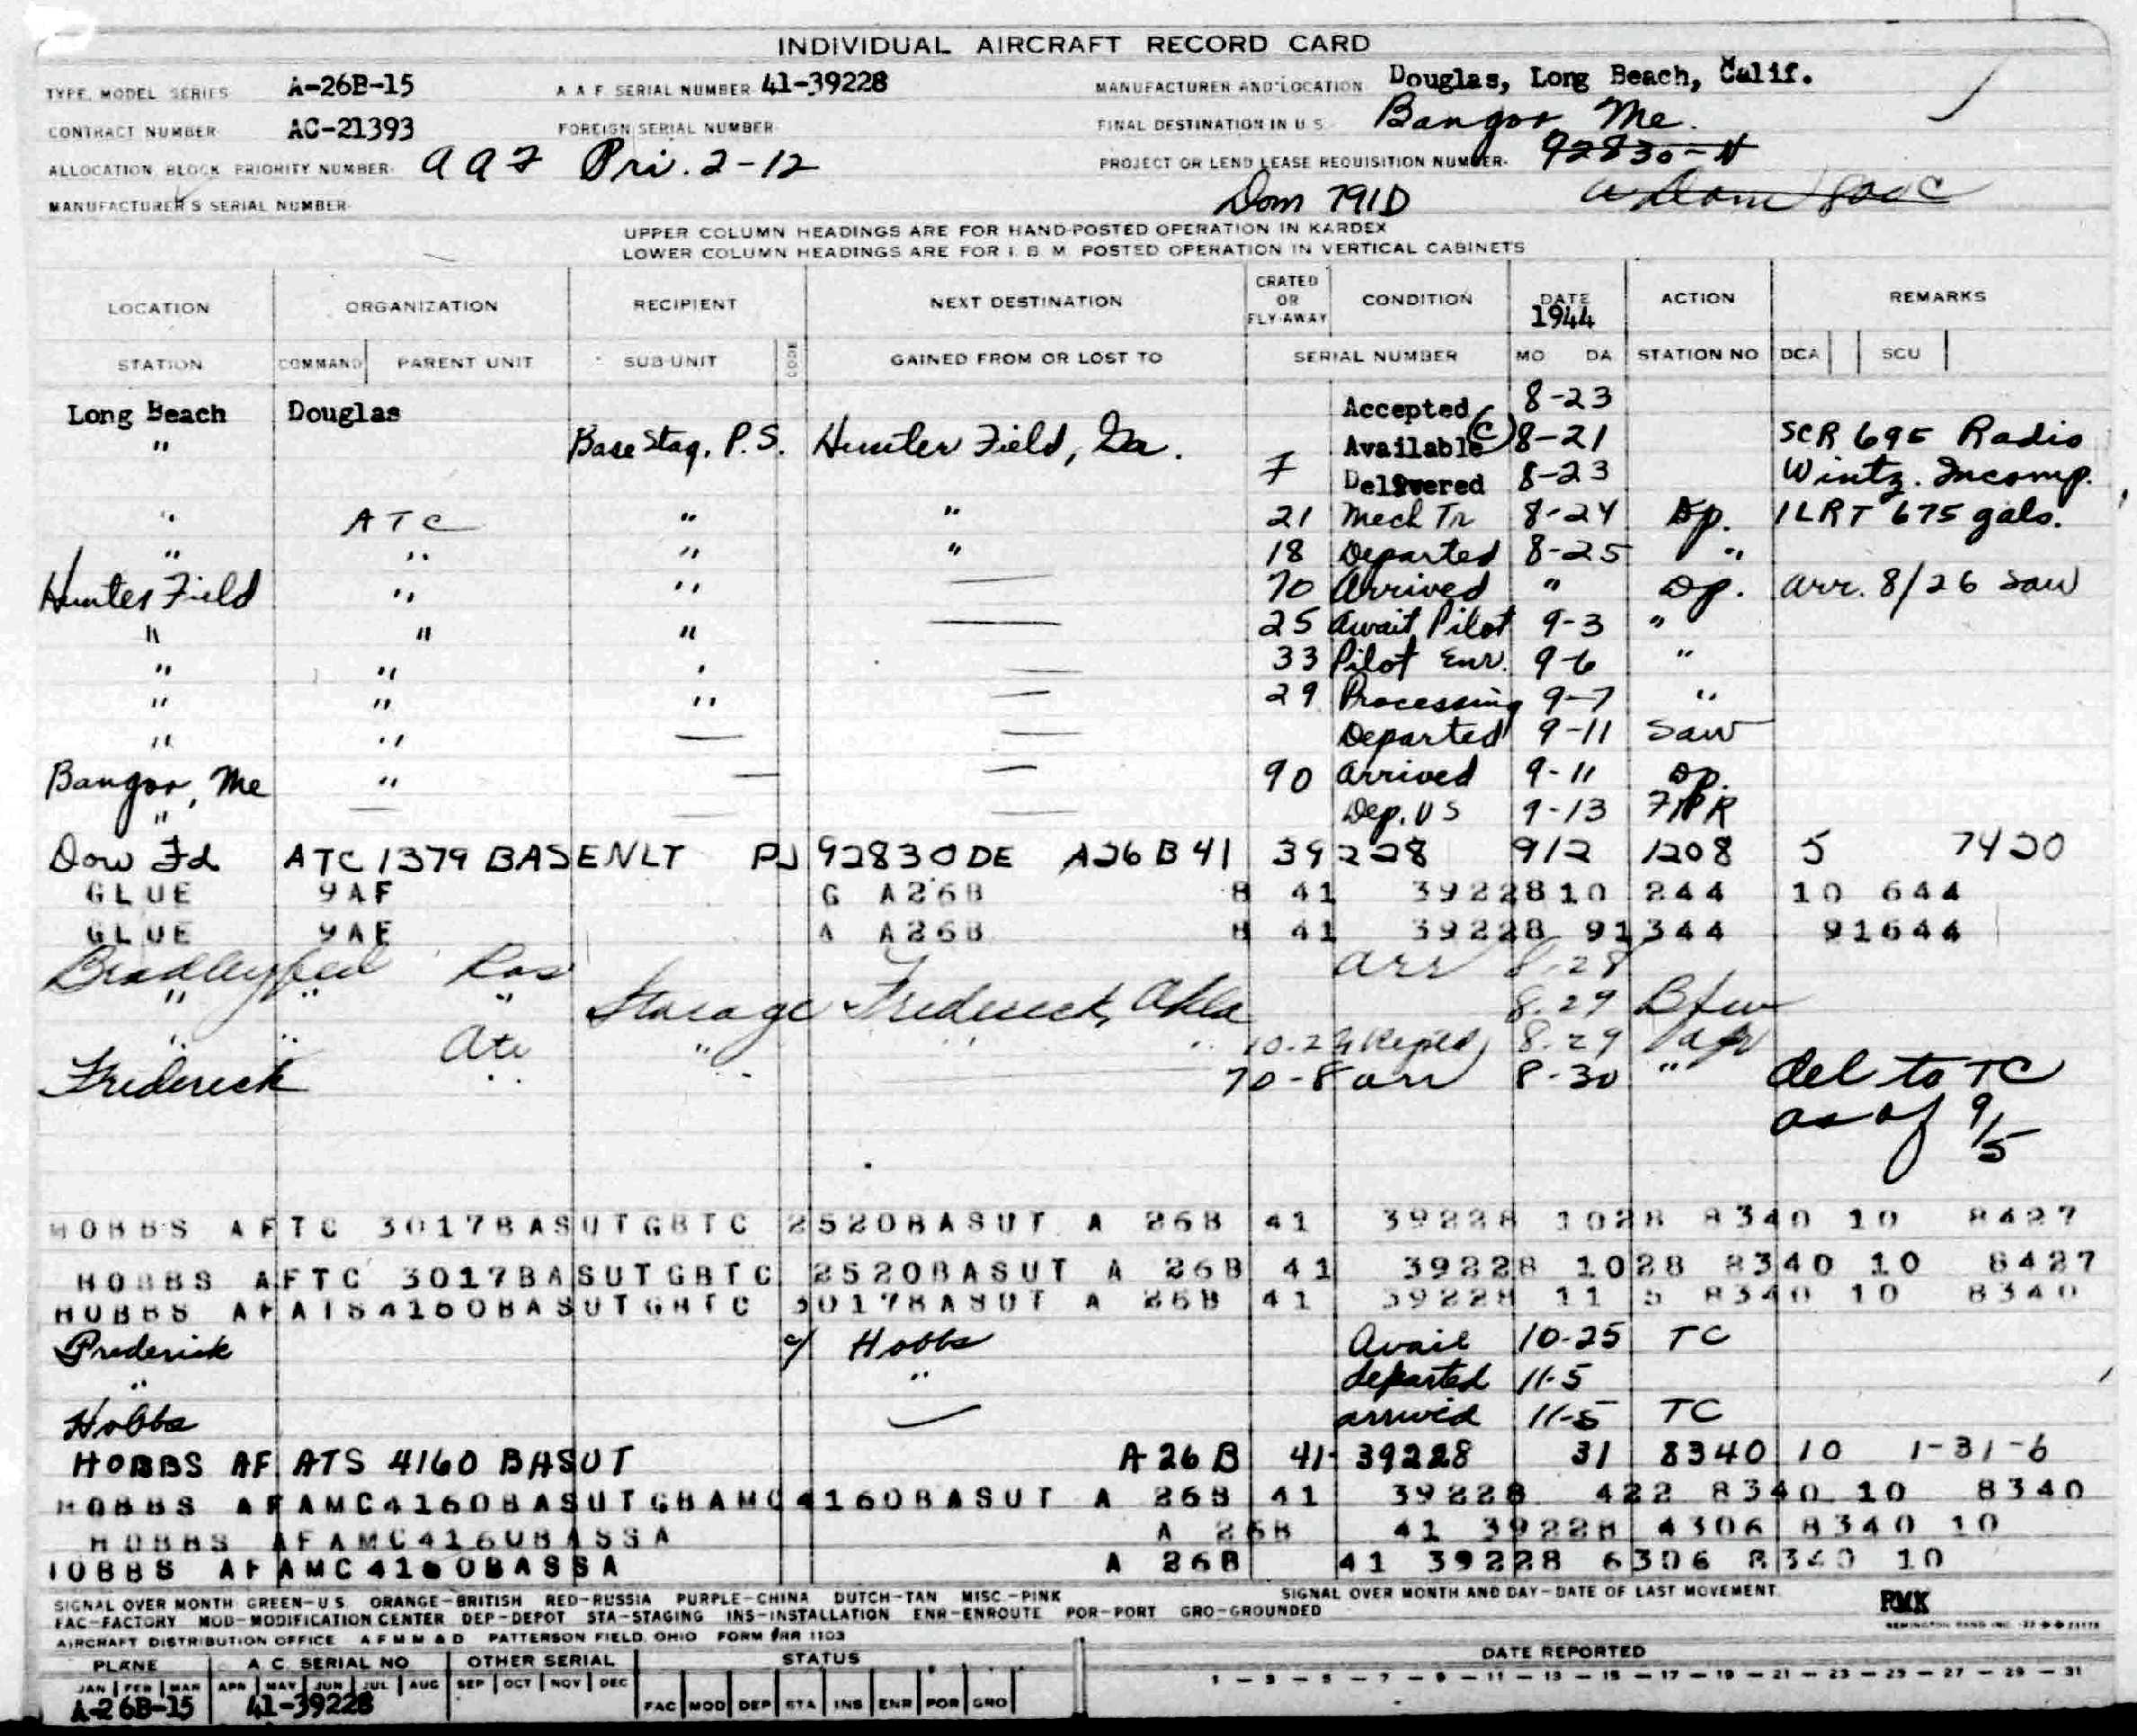 INDIVIDUAL AIRCRAFT RECORD CARD
TYPE, MODEL SERIES A-26B-15 A A F SERIAL NUMBER 41-39228 MANUFACTURER AND LOCATION Douglas, Long Beach, Calif.
CONTRACT NUMBER AC-21393 FOREIGN SERIAL NUMBER FINAL DESTINATION IN U S Bangor Me.
ALLOCATION BLOCK PRIORITY NUMBER AAF Pri. 2-12 PROJECT OR LEND LEASE REQUISITION NUMBER 92830-H
MANUFACTURER'S SERIAL NUMBER Dom 791D
UPPER COLUMN HEADINGS ARE FOR HAND-POSTED OPERATION IN KARDEX
LOWER COLUMN HEADINGS ARE FOR I. B M. POSTED OPERATION IN VERTICAL CABINETS
LOCATION ORGANIZATION RECIPIENT NEXT DESTINATION CRATED OR FLY-AWAY CONDITION DATE 1944 ACTION REMARKS
STATION COMMAND PARENT UNIT SUB-UNIT CODE GAINED FROM OR LOST TO SERIAL NUMBER MO DA STATION NO DCA SCU
Long Beach Douglas Accepted 8-23
" Base Stag. P.S. Hunter Field, Ga. Available (C) 8-21 SCR 695 Radio
7 Delivered 8-23 Wintz. Incomp.
" ATC " " 21 Mech Tr 8-24 Dp. 1LRT 675 gals.
" " " " 18 Departed 8-25 "
Hunter Field " " — 70 Arrived " Dp. arr. 8/26 Saw
" " " — 25 Await Pilot 9-3 "
" " " — 33 Pilot Enr. 9-6 "
" " " — 29 Processing 9-7 "
" " — — Departed 9-11 Saw
Bangor, Me " — — 90 Arrived 9-11 Dp.
" — — — Dep. US 9-13
Dow Fd ATC 1379 BASENLT PJ 92830DE A26B41 39228 912 1208 5 7420
GLUE 9AF G A26B B 41 3922810 244 10 644
GLUE 9AF A A26B B 41 39228 91344 91644
Bradley Arr 8-28
" " " Storage Frederick, Okla 8.29
" " Atc " " " 8-29
Frederick " " 70-8 arr 8-30 " del to TC
as of 9/5
HOBBS AFTC 3017BASUTGBTC 2520BASUT A 26B 41 39228 1028 8340 10 8427
HOBBS AFTC 3017BASUTGBTC 2520BASUT A 26B 41 39228 1028 8340 10 8427
HOBBS AFATS4160BASUTGBTC 3017BASUT A 26B 41 39228 11 5 8340 10 8340
Frederick Hobbs Avail 10-25 TC
" " departed 11-5
Hobbs — arrived 11-5 TC
HOBBS AF ATS 4160 BASUT A 26 B 41- 39228 31 8340 10 1-31-6
HOBBS AFAMC4160BASUTGBAMC4160BASUT A 26B 41 39228 422 8340 10 8340
HOBBS AFAMC4160BASSA A 26B 41 39228 4306 8340 10
HOBBS AFAMC4160BASSA A 26B 41 39228 6306 8340 10
SIGNAL OVER MONTH GREEN-U S. ORANGE-BRITISH RED-RUSSIA PURPLE-CHINA DUTCH-TAN MISC.-PINK SIGNAL OVER MONTH AND DAY-DATE OF LAST MOVEMENT.
FAC-FACTORY MOD-MODIFICATION CENTER DEP-DEPOT STA-STAGING INS-INSTALLATION ENR-ENROUTE POR-PORT GRO-GROUNDED
AIRCRAFT DISTRIBUTION OFFICE A F M M & D PATTERSON FIELD, OHIO FORM #RR 1103
PLANE A C. SERIAL NO OTHER SERIAL STATUS DATE REPORTED
JAN FEB MAR APR MAY JUN JUL AUG SEP OCT NOV DEC 1 - 3 - 5 - 7 - 9 - 11 - 13 - 15 - 17 - 19 - 21 - 23 - 25 - 27 - 29 - 31
A-26B-15 41-39228 FAC MOD DEP STA INS ENR POR GRO